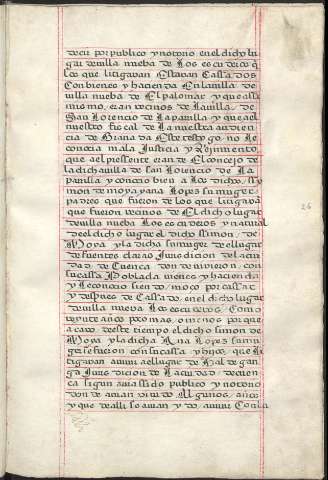 decir por publico y notorio en el dicho lu
gar de villa nueba de Los escuderos q̃
los que litigavan Estavan Cassados
Con bienes y hacienda En la villa de
villa nueba de El palomar y que assi
mismo, eran vecinos de La villa de
San Lorencio de La parrilla y que al
nuestro fiscal de La nuestra audien
cia de Grana da Este testigo no Le
conocia mala Justicia y Regimiento
que al pressente eran de El concejo de
la dicha villa de San Lorencio de La
parrilla y conocio bien a Los dichos, Si
mon de moya y ana Lopes su muger
padres que fueron de los que litigavã
que fueron vecinos de El dicho lugar
de villa nueba Los escuderos y natural
do el dicho lugar el dicho ssimon, de
Moya y la dicha su muger de el lugar
de fuentes claras Jurisdicion de la ciu
dad de Cuenca donde vivieron con
su cassa Poblada vienes y hacienda
y Le conocio siendo, moço por cassar
y despues de Cassado en el dicho lugar
de villa nueva Los escuderos Como
veynte años poco mas, o menos por que
a cavo de este tiempo el dicho simon de
Moya y la dicha Ana Lopes su mu
ger se fueron con su cassa y hijos que li
tigavan a vivir a el lugar de
ga Juris dicion de La ciudad de cuen
ca sigun avia ssido publico y notorio
don de avian vivido Algunos, años
y que de alli se avian ydo, a vivir Con la
26